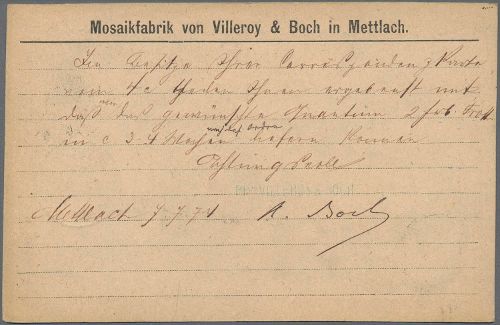 Mosaikfabrik von Villeroy & Boch in Mettlach.
Im Besitze Ihrer Correspondenz Karte
vom 4 c theilen Ihnen ergebenst mit
daß wir das gewünschte Quantum
in c 3-4 Wochen nach Ordre liefern können
Achtungsvoll
Mettlach 7.7.71
Boch